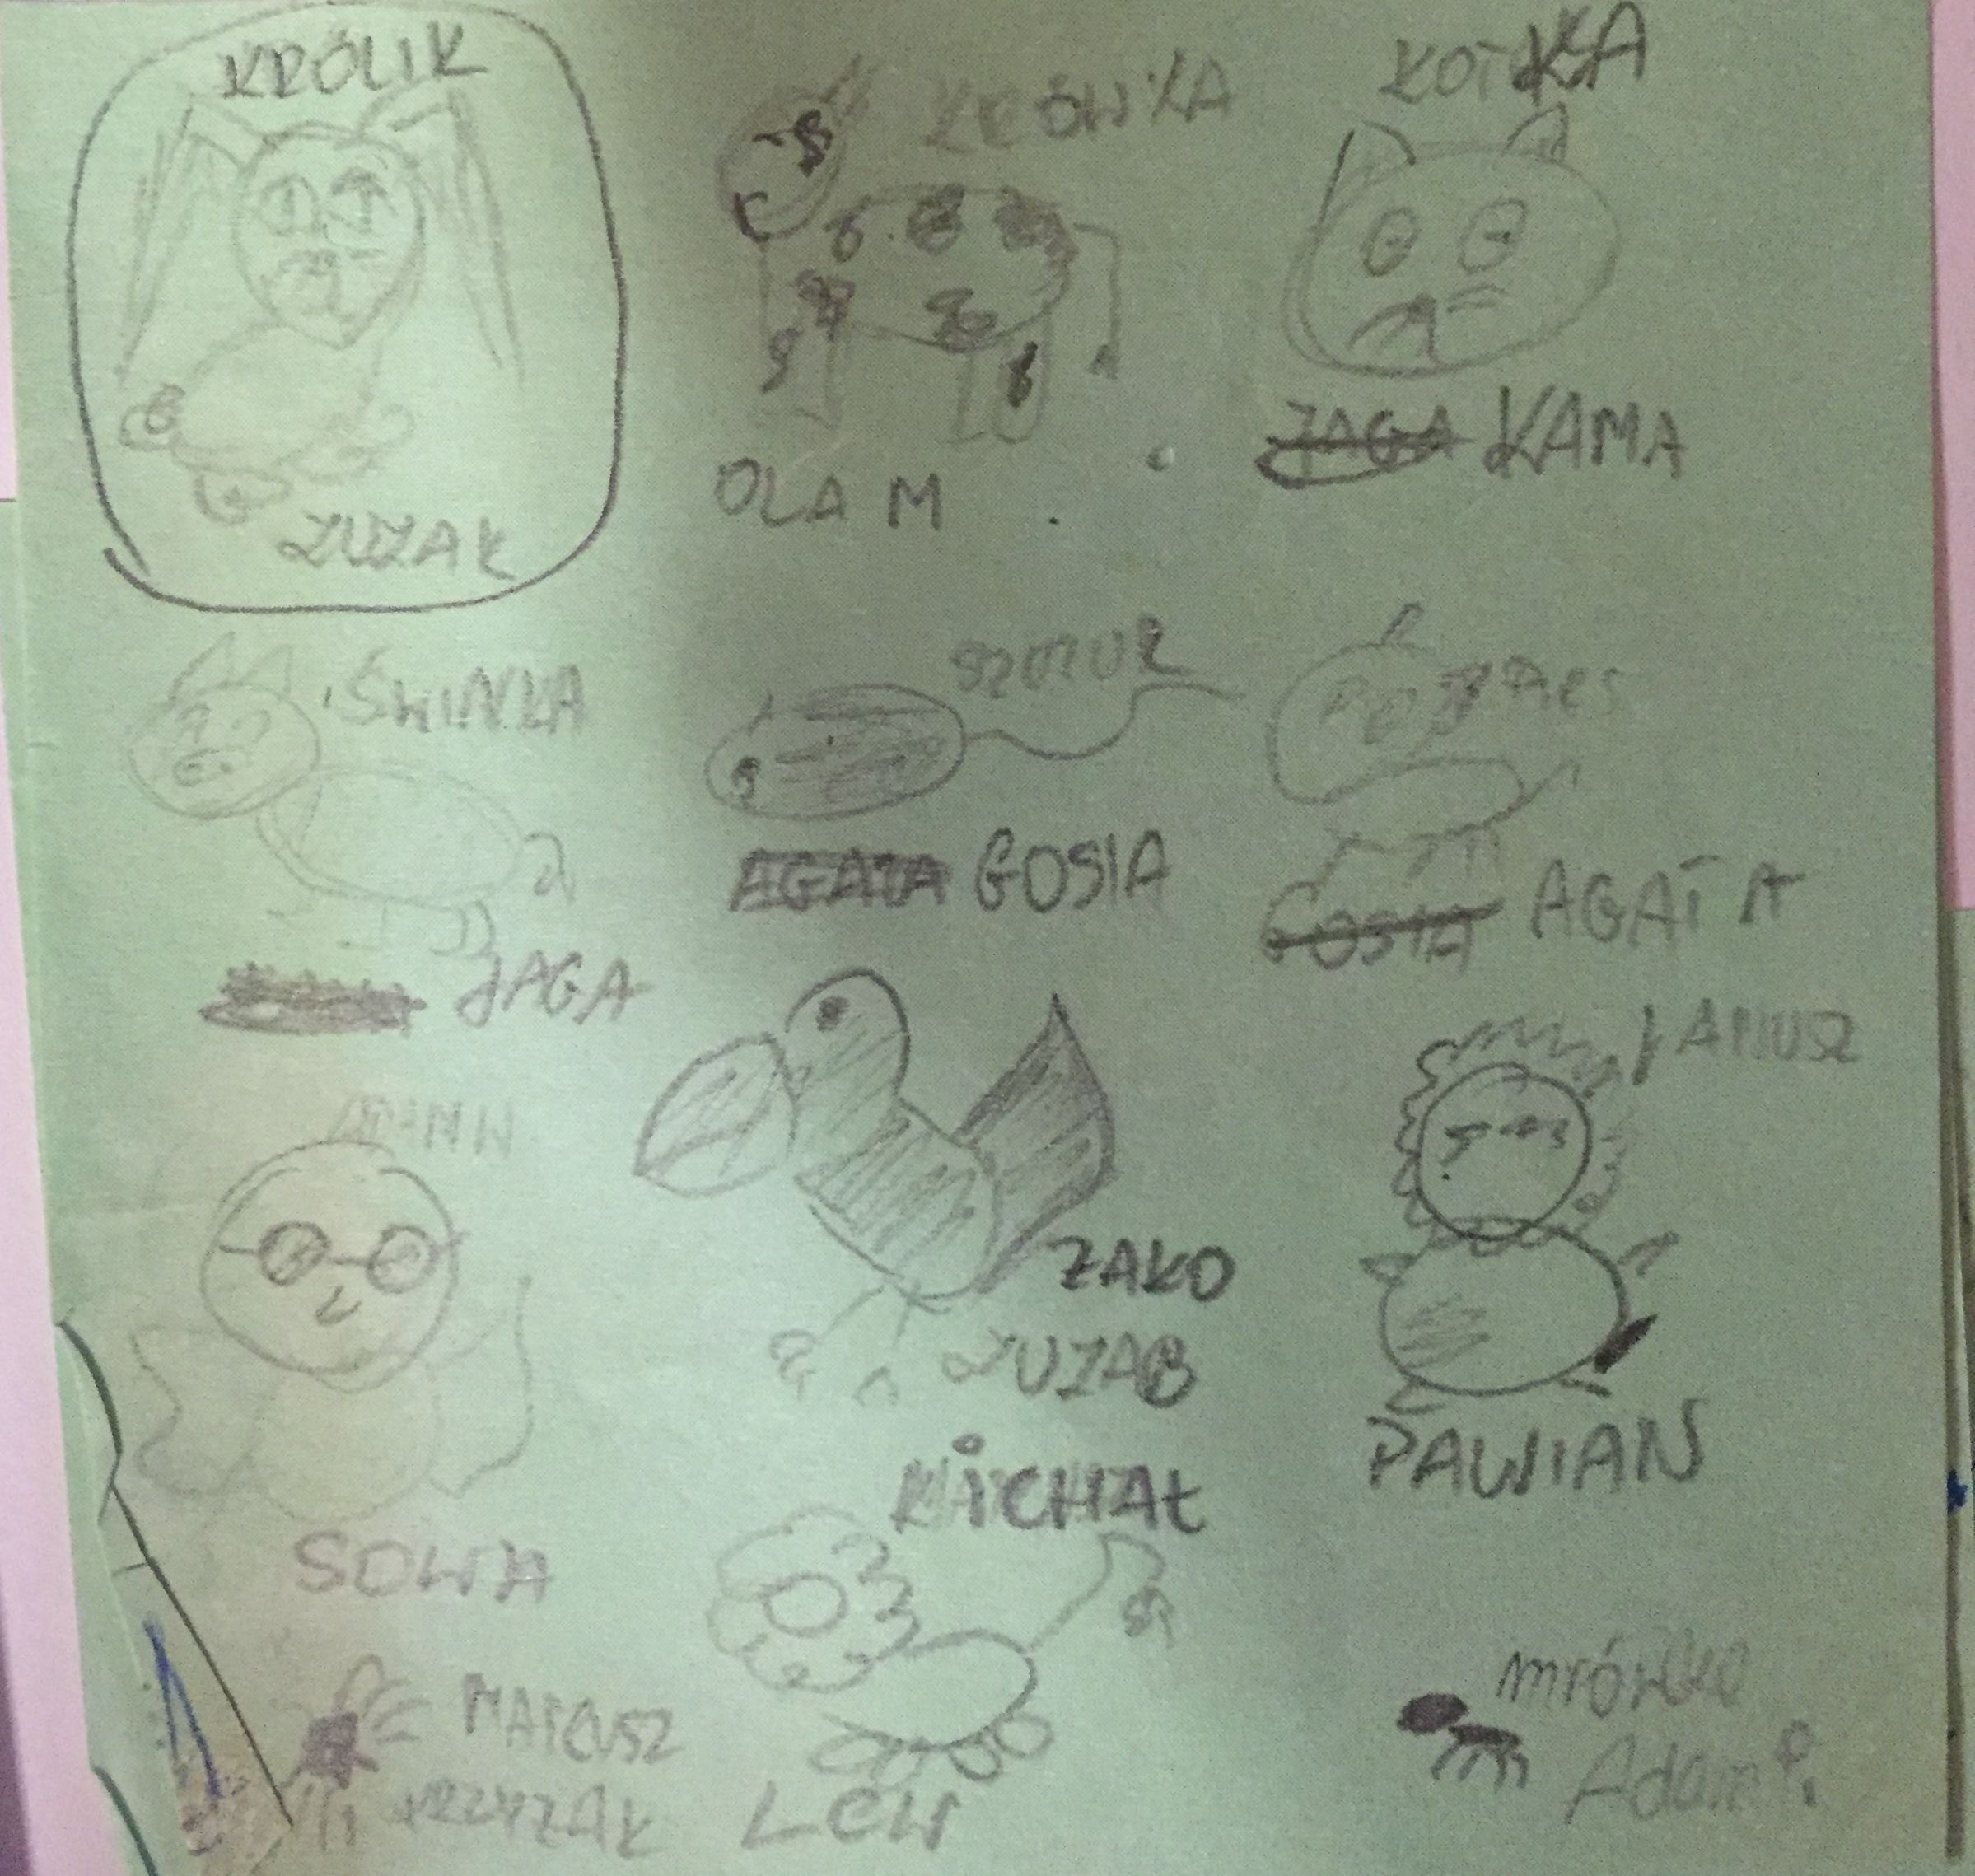 KRÓLIK
ZUZAK
KRÓWKA
OLA M
KOTKA
JAGA KAMA
ŚWINKA
JAGA
SZCZUR
AGATA GOSIA
PIES
GOSIA AGATA
SOWA
ZAKO
ZUZAB
JANUSZ
PAWIAN
MICHAŁ
LEW
MATEUSZ
KRZYŻAK
mrówka
Adam P.